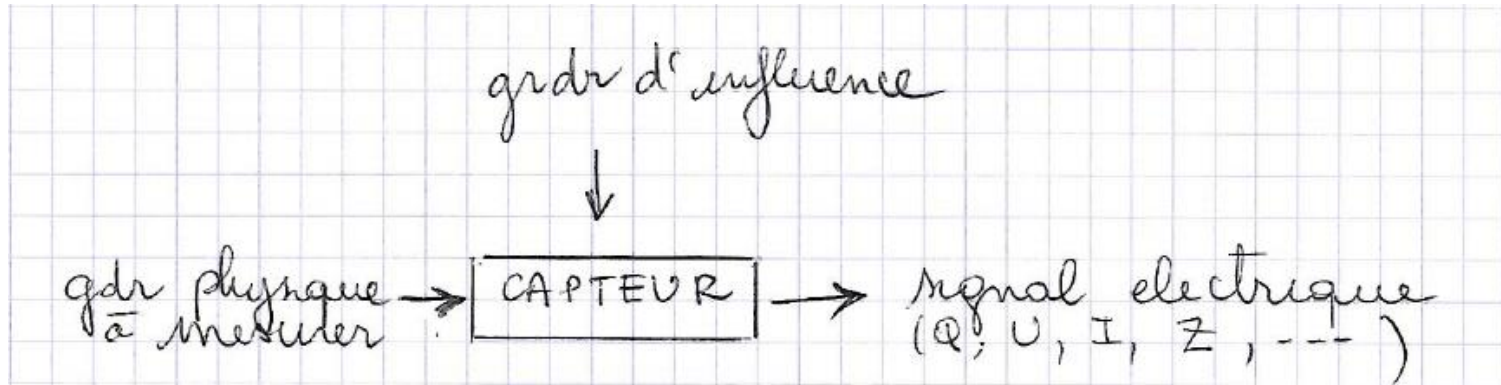 grdr d'influence
gdr physique
à mesurer
CAPTEUR
signal electrique
(Q, U, I, Z, ---)